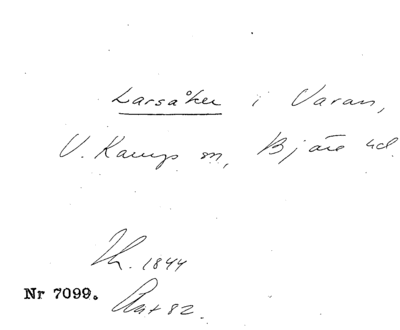 Larsåker i Varan,
V. Karup sn, Bjäre hd.
Th. 1844
Nr 7099.
+ 82.